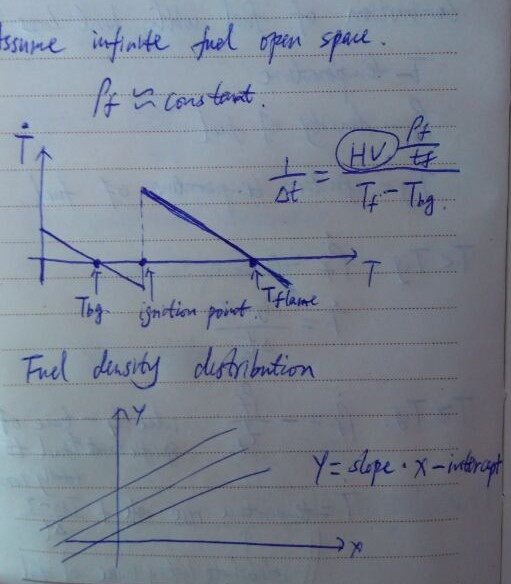 Assume infinite fuel open space.
ρf ≈ constant.
Ṫ
1/Δt = (HV) ρf/tf / Tf - Tbg.
T
Tbg. ignition point. Tflame
Fuel density distribution
Y
Y = slope · x - intercept
x